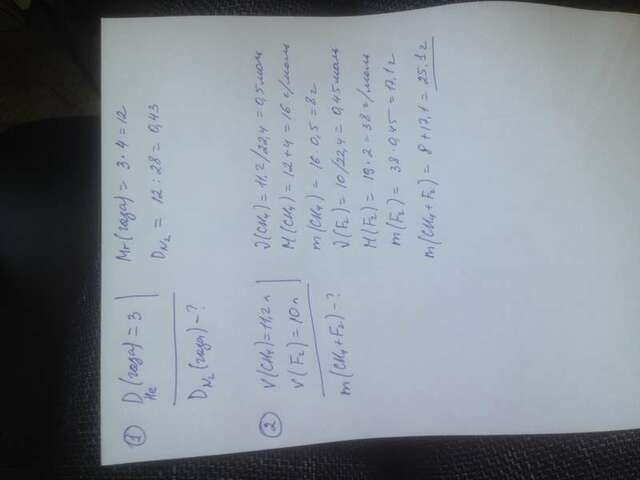 ① D (газа) = 3
He
D N₂ (газа) - ?
Mr (газа) = 3 · 4 = 12
D N₂ = 12 : 28 = 0,43
② V (CH₄) = 11,2 л
V (F₂) = 10 л
m (CH₄ + F₂) - ?
ν (CH₄) = 11,2 / 22,4 = 0,5 моль
M (CH₄) = 12 + 4 = 16 г/моль
m (CH₄) = 16 · 0,5 = 8 г
ν (F₂) = 10 / 22,4 = 0,45 моль
M (F₂) = 19 · 2 = 38 г/моль
m (F₂) = 38 · 0,45 = 17,1 г
m (CH₄ + F₂) = 8 + 17,1 = 25,1 г